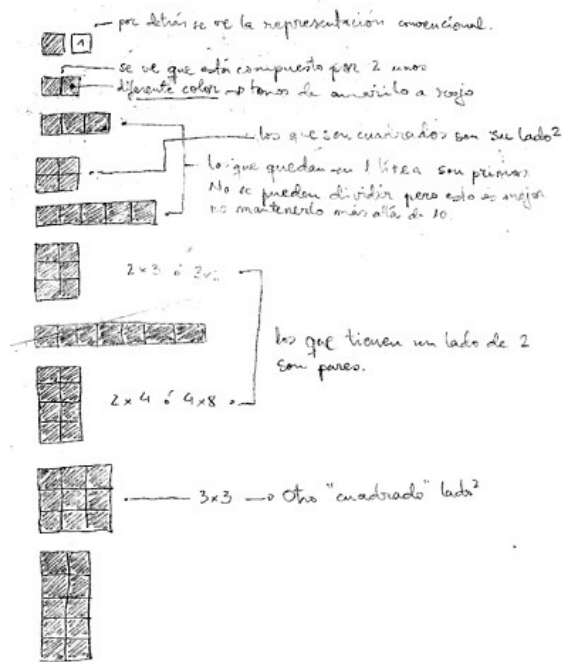 por detrás se ve la representación convencional.
1
se ve que están compuesto por 2 unos
diferente color → tonos de amarillo a rojo
los que son cuadrados son su lado²
los que quedan en 1 línea son primos
No se pueden dividir pero esto es mejor
no mantenerlo más allá de 10.
2 x 3 ó
los que tienen un lado de 2
son pares.
2 x 4 ó 4 x 8
3x3 → Otro "cuadrado" lado²